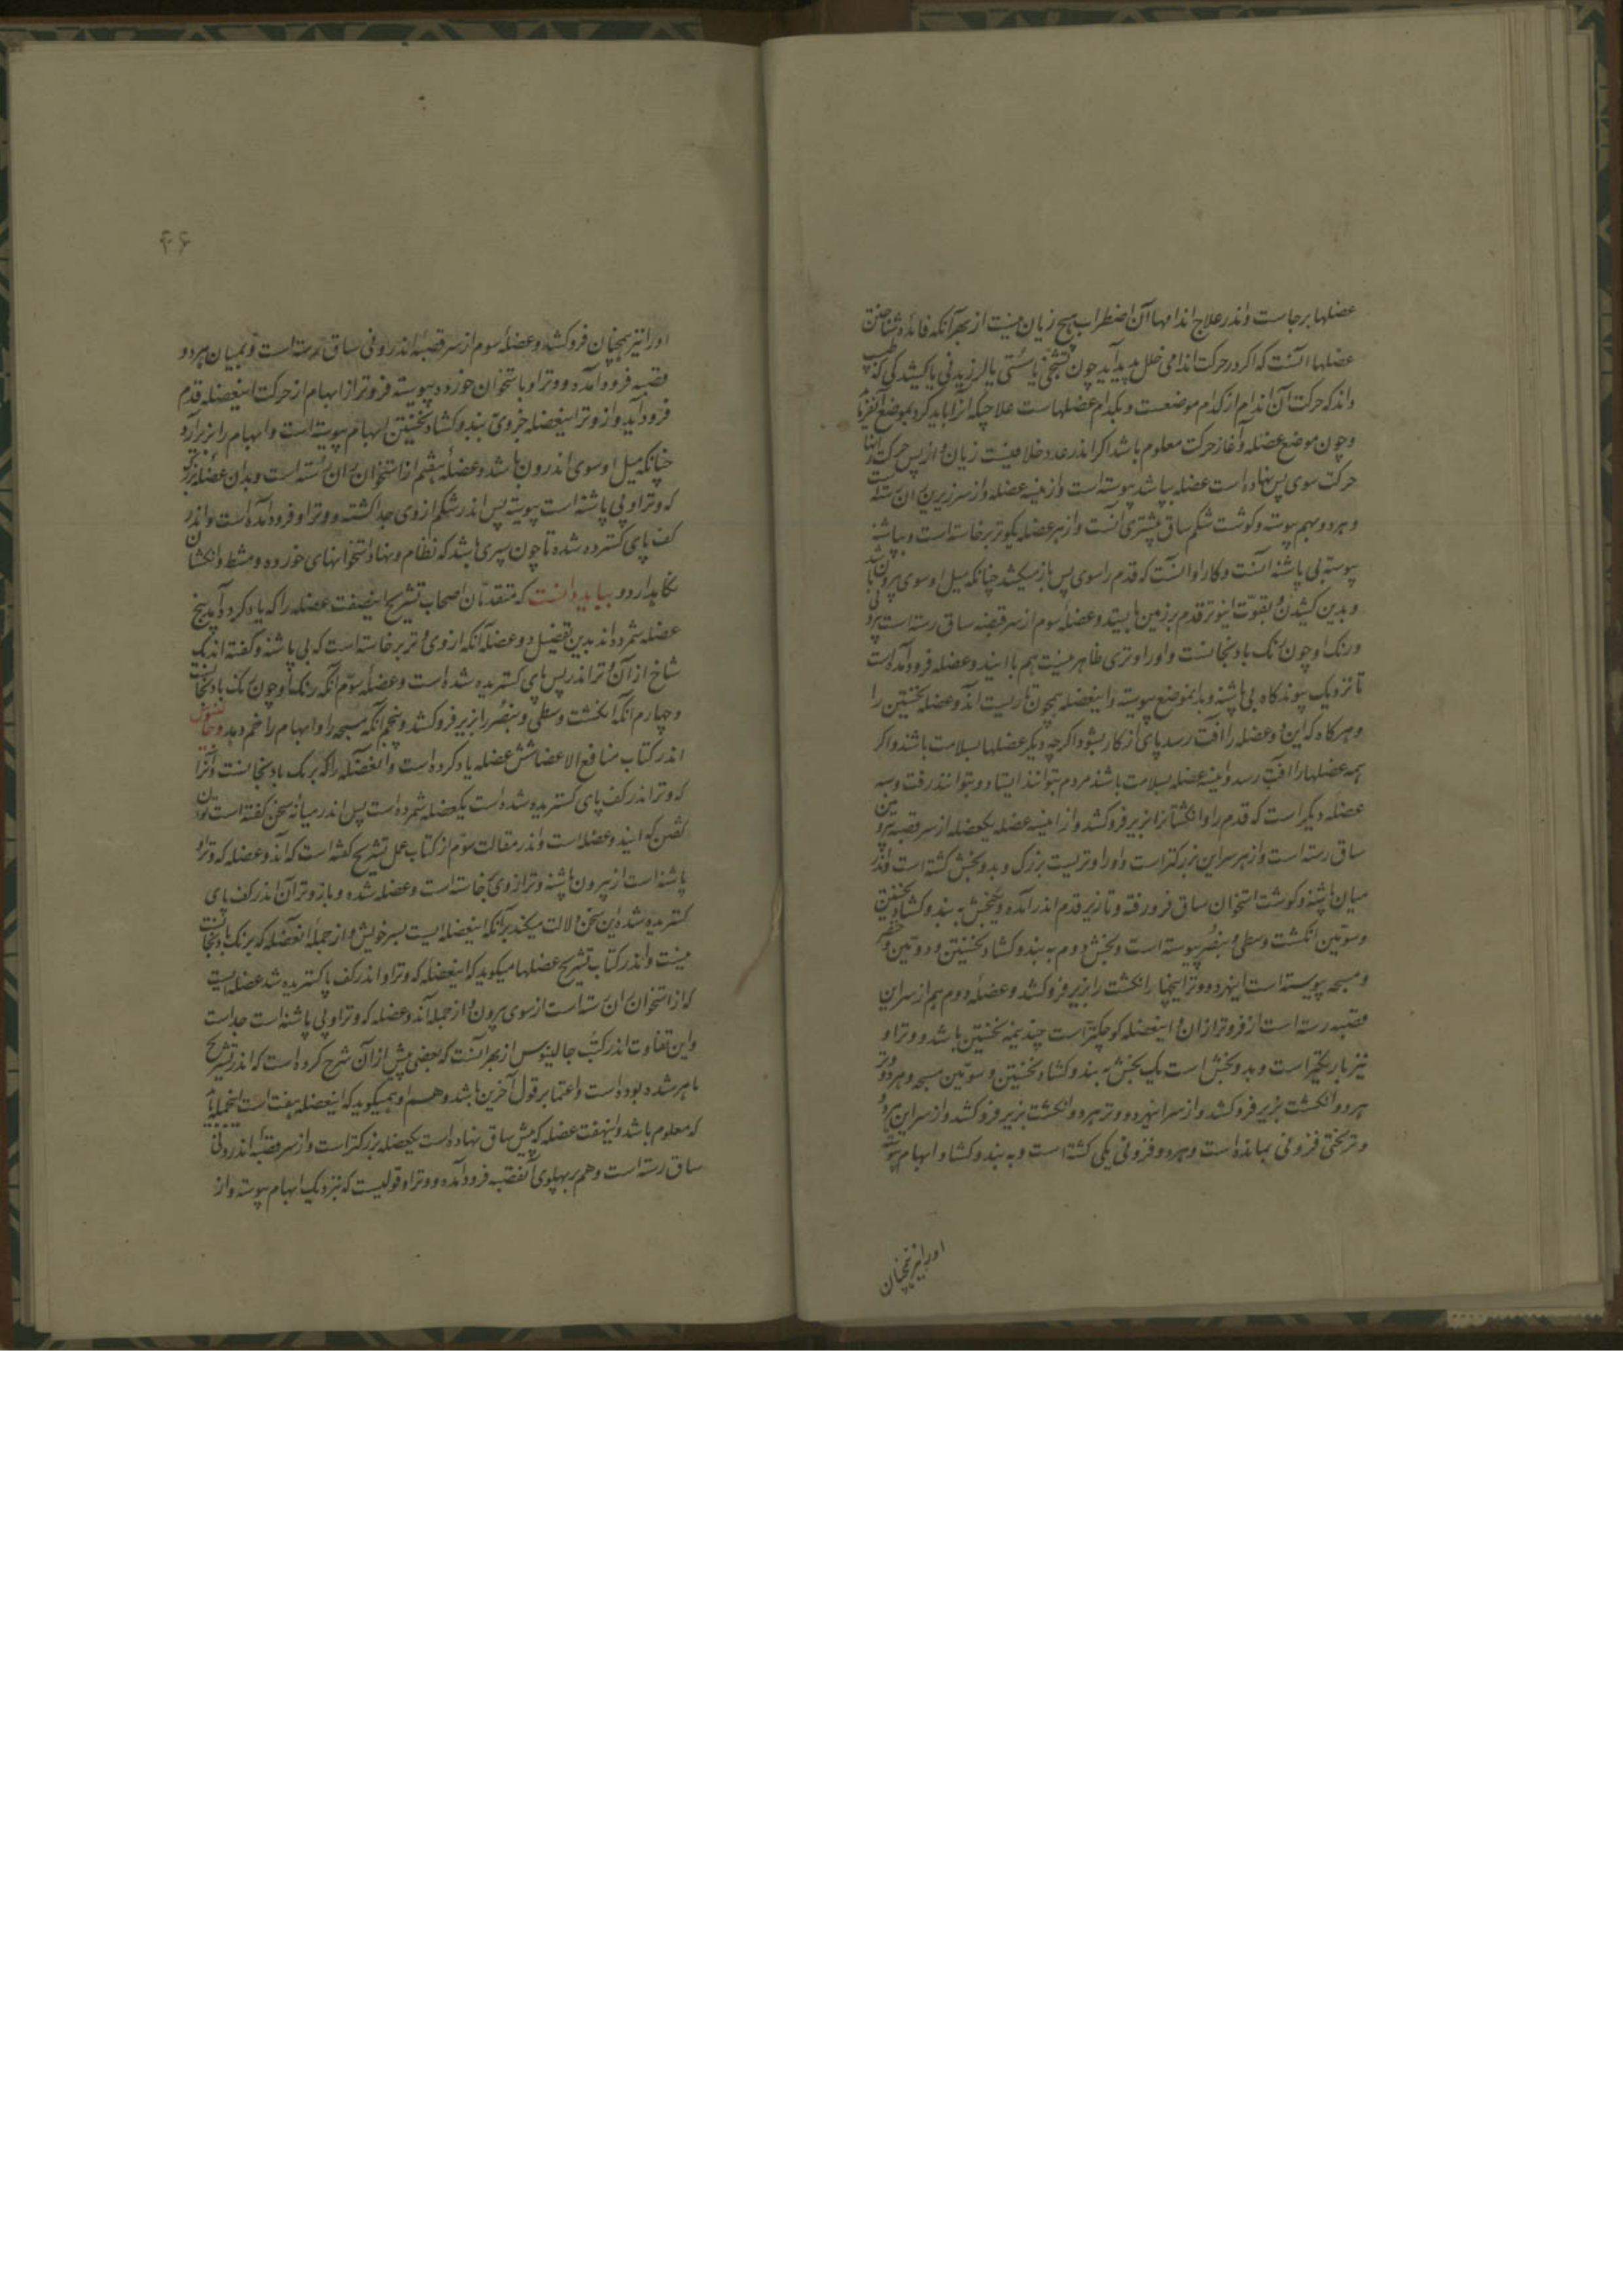 عضلها برجاست واندر علاج اندامها آن اضطراب هیچ زیان نیست از بهر آنکه فائده شناختن
عضلها آنست که اکر در حرکت اندامی خلل پدید آید چون تشنجی یا سستی یا لرزیدنی یا کشیدکی که طبیب
داند که حرکت آن اندام از کدام موضعست و بکدام عضلهاست علاج چکونه باید کرد بموضع
و چون موضع عضله و آغاز حرکت معلوم باشد اکر اندر عدد خلافیست زیان از پس حرکت
حرکت سوی پس نهاده است عضله بپاشنه پیوسته است و ازینسه عضله دو از سر زیرین ران رسته است
و هر دو بهم پیوسته و کوشت شکم ساق بیشتری آنست و از هر عضله یکوتر برخاسته است و بپاشنه
پیوسته پی پاشنه آنست و کار او آنست که قدم را سوی پس باز میکشد چنانکه میل او سوی بیرون باشد
و بدین کشیدن و بقوت اینوتر قدم بر زمین بایستد و عضله سوم از سر قصبه ساق رسته است بیرونی
و رنک او چون رنک بادنجانست و او را وتری ظاهر نیست هم با ایندو عضله فرود آمده است
تا نزدیک پیوندکاه پی پاشنه و بدانموضع پیوسته و اینعضله همچون یاریست آندو عضله نخستین را
و هرکاه که این دو عضله را آفت رسد پای از کار بشود اکرچه دیکر عضلها بسلامت باشند و اکر
همه عضلها را آفت رسد و اینسه عضله بسلامت باشند مردم بتوانند ایستاد و بتوانند رفت و سه
عضله دیکر است که قدم را و انکشتانرا بزیر فرو کشد و از اینسه عضله یکعضله از سر قصبه بیرونین
ساق رسته است و از هر سر این بزرکتر است و او را وتریست بزرک و بدو بخش کشته است و اندر
میان پاشنه و کوشت استخوان ساق فرو رفته و تا زیر قدم اندر آمده و یکبخش به بند و کشاد نخستین
و سومین انکشت وسطی و بنصر پیوسته است و بخش دوم به بند و کشاد نخستین و دومین خنصر
و مسبحه پیوسته است اینهر دو وتر اینچهار انکشت را بزیر فرو کشد و عضله دوم هم از سر این
قصبه رسته است از فروتر ازان و اینعضله کوچکتر است چند نیمه نخستین باشد و وتر او
نیز باریکتر است و بدو بخش است یک بخش به بند و کشاد نخستین و سومین مسبحه و هر دو وتر
هر دو انکشت بزیر فرو کشد و از سر اینهر دو وتر هر دو انکشت بزیر فرو کشد و از سر این هر دو
وتر لختی فزونی بمانده است و هر دو فزونی یکی کشته است و به بند و کشاد ابهام پیوسته
اورا نیز همچنان
۴۶
اورا نیز همچنان فرو کشد و عضله سوم از سر قصبه اندرونی ساق رسته است و بمیان هر دو
قصبه فرود آمده و وتر او باستخوان خورده پیوسته فروتر از ابهام از حرکت اینعضله قدم
فرود آید و از وتر اینعضله جزوی به بند و کشاد نخستین ابهام پیوسته است و ابهام را بزیر آرد
چنانکه میل او سوی اندرون باشد و عضله هفتم از استخوان ران رسته است و بدان عضله بزرک
که وتر او پی پاشنه است پیوسته پس اندر شکم از وی جدا کشته و وتر او فرود آمده است و اندر
کف پای کسترده شده تا چون سپری باشد که نظام و نهاد استخوانهای خورده و مشط و انکشتان
نکاه دارد و بباید دانست که متقدمان اصحاب تشریح اینهفت عضله را که یاد کرده آمد پنج
عضله شمرده اند بدین تفصیل دو عضله آنکه از وی وتر برخاسته است که پی پاشنه و کفته اند یک
شاخ از آن وتر اندر پس پای کستریده شده است و عضله سوم آنکه رنک او چون رنک بادنجانست
و چهارم آنکه انکشت وسطی و بنصر را بزیر فرو کشد و پنجم آنکه مسبحه را و ابهام را خم دهد و جالینوس
اندر کتاب منافع الاعضا شش عضله یاد کرده است و آنعضله را که برنک بادنجانست و آنرا
که وتر اندر کف پای کستریده شده است یکعضله شمرده است پس اندر میانه سخن کفته است توان
کفتن که ایندو عضله است و اندر مقالت سوم از کتاب عمل تشریح کفته است که آندو عضله که وتر او
پاشنه است از بیرون پاشنه وتر از وی برخاسته است و عضله شده و باز وتر آن اندر کف پای
کستریده شده این سخن دلالت میکند برآنکه اینعضله ایست بسر خویش و از جمله آنعضله که برنک بادنجانست
نیست و اندر کتاب تشریح عضلها میکوید که اینعضله که وتر او اندر کف پا کستریده شد عضله ایست
که از استخوان ران رسته است از سوی بیرون و از جمله آندو عضله که وتر او پی پاشنه است جداست
و این تفاوت اندر کتب جالینوس از بهر آنست که بعضی پیش از آن شرح کرده است که اندر تشریح
ماهر شده بوده است و اعتماد بر قول آخرین باشد و هم او همیکوید که اینعضله هفت است
که معلوم باشد و اینهفت عضله که پیش ساق نهاده است یکعضله بزرکتر است و از سر قصبه اندرونی
ساق رسته است و هم بر پهلوی آنقصبه فرود آمده و وتر او قولیست که نزدیک ابهام پیوسته و از